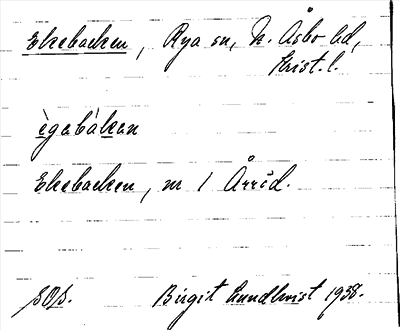 Ekebacken, Rya sn, N. Åsbo hd,
Krist. l.
ègabàkan
Ekebacken, nr 1 Årröd.
SOS. Birgit Lundkvist 1938.